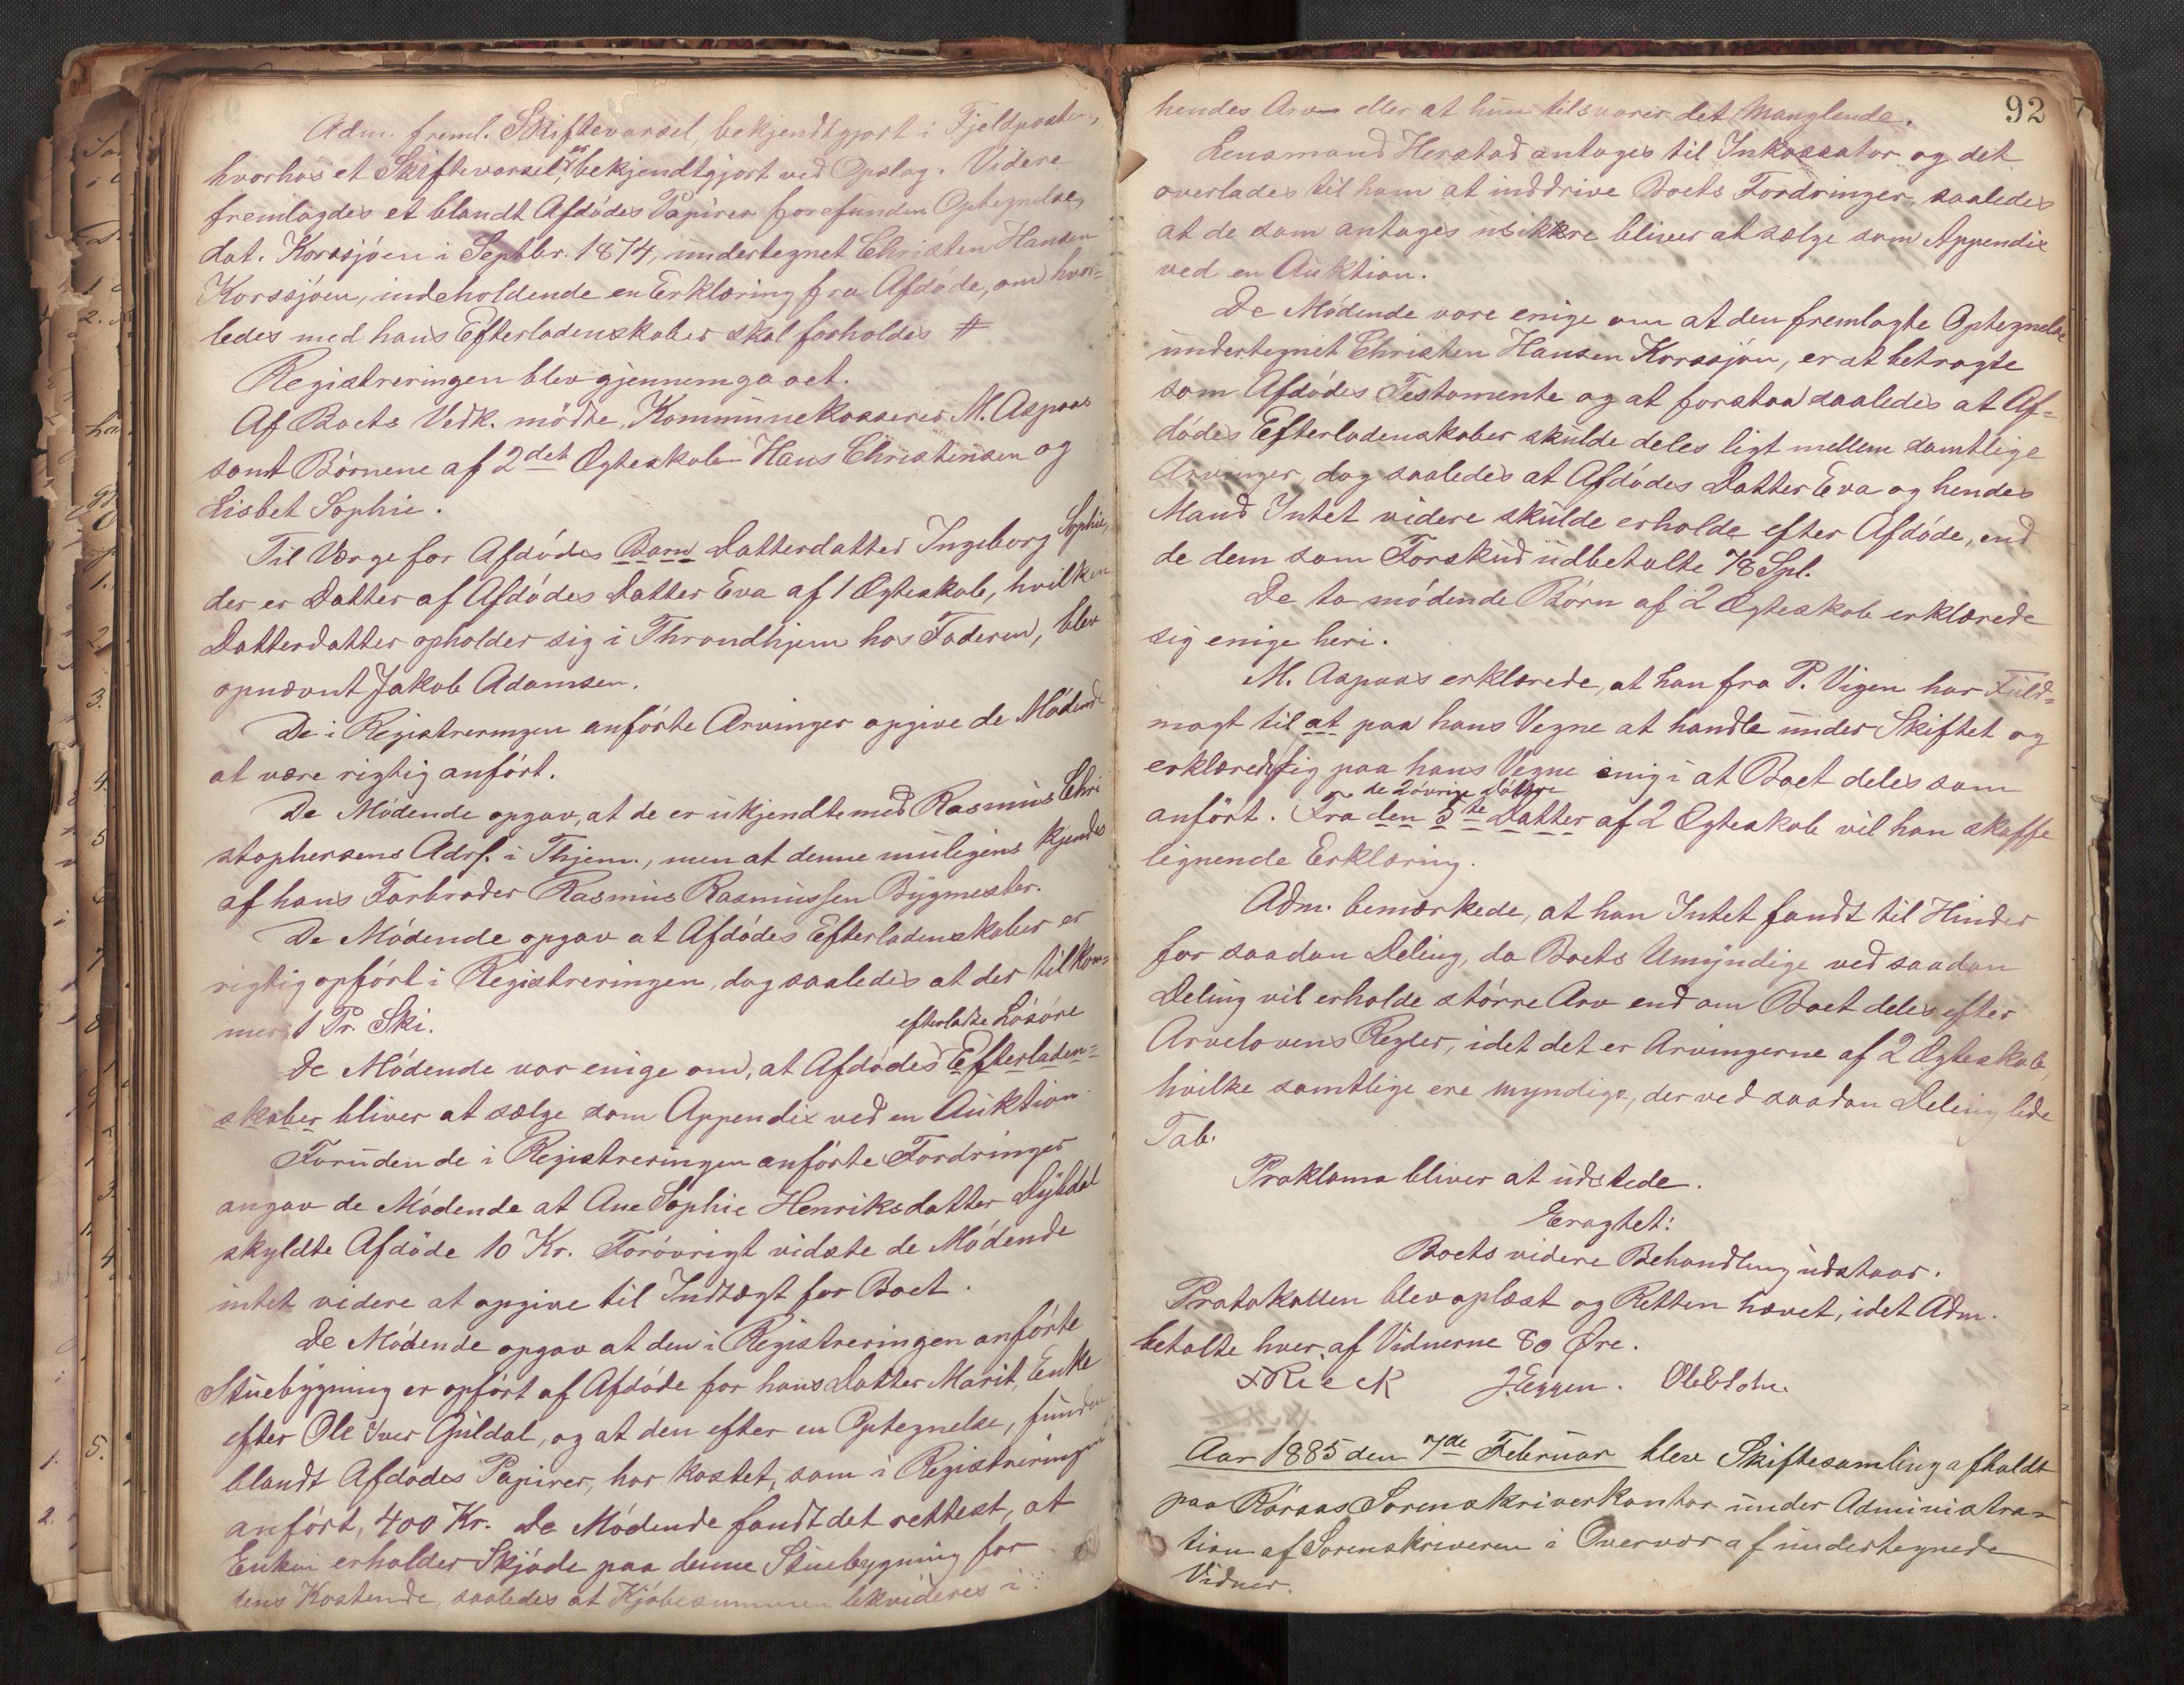 Adm. freml. Skiftevarsel, bekjendtgjort i Fjeldposten,
hvorhos et Skiftevarsel, er bekjendtgjort ved Opslag. Videre
fremlagdes et blandt Afdødes Papirer forefunden Optegnelse,
dat. Korssjøen i Septbr. 1874, undertegnet Christen Hansen
Korssjøen, indeholdende en Erklæring fra Afdøde, om hvor-
ledes med hans Efterladenskaber skal forholdes #
Registreringen blev gjennemgaaet.
Af Boets Vedk. mødte, Kommunekasserer M. Aspaas
samt Børnene af 2det Ægteskab Hans Christensen og
Lisbet Sophie.
Til Værge for Afdødes Barn Datterdatter Ingeborg Sophie,
der er Datter af Afdødes Datter Eva af 1 Ægteskab, hvilken
Datterdatter opholder sig i Throndhjem hos Faderen, blev
opnævnt Jakob Adamsen.
De i Registreringen anførte Arvinger opgive de Mødende
at være rigtig anført.
De Mødende opgav, at de er ukjendte med Rasmus Chri
stophersens Adrs. i Thjem., men at denne muligens kjendes
af hans Farbroder Rasmus Rasmussen Bygmester.
De Mødende opgav at Afdødes Efterladenskaber er
rigtig opført i Registreringen, dog saaledes at der tilkom-
mer 1 Pr. Ski.
efterladte Løsøre
De Mødende var enige om, at Afdødes Efterladen-
skaber bliver at sælge som Appendix ved en Auktion.
Foruden de i Registreringen anførte Fordringer
angav de Mødende at Ane Sophie Henriksdatter Dybdal
skyldte Afdøde 10 Kr. Forøvrigt vidste de Mødende
intet videre at opgive til Indtægt for Boet.
De Mødende opgav at den i Registreringen anførte
Stuebygning er opført af Afdøde for hans Datter Marit, Enke
efter Ole Iver Guldal, og at den efter en Optegnelse, funden
blandt Afdødes Papirer, har kostet, som i Registreringen
anført, 400 Kr. De Mødende fandt det rettest, at
Enken erholder Skjøde paa denne Stuebygning for
dens Kostende, saaledes at Kjøbesummen likvideres i
92
hendes Arv eller at hun tilsvarer det Manglende.
Lensmand Herstad antoges til Inkassator og det
overlades til ham at inddrive Boets Fordringer, saaledes
at de som antages usikkre bliver at sælge som Appendix
ved en Auktion.
De Mødende vare enige om at den fremlagte Optegnelse
undertegnet Christen Hansen Korssjøen, er at betragte
som Afdødes Testamente og at forstaa saaledes at Af-
dødes Efterladenskaber skulde deles ligt mellem samtlige
Arvinger, dog saaledes at Afdødes Datter Eva og hendes
Mand Intet videre skulde erholde efter Afdøde, end
de dem som Forskud udbetalte 78 Spl.
De to mødende Børn af 2 Ægteskab erklærede
sig enige heri.
M. Aspaas erklærede, at han fra P. Vigen har Fuld-
magt til at paa hans Vegne at handle under Skiftet og
erklærede sig paa hans Vegne enig i at Boet deles som
de 2 øvrige Døttre
anført. Fra den 5te Datter af 2 Ægteskab vil han skaffe
lignende Erklæring.
Adm. bemærkede, at han Intet fandt til Hinder
for saadan Deling, da Boets Umyndige ved saadan
Deling vil erholde større Arv end om Boet deles efter
Arvelovens Regler, idet det er Arvingerne af 2 Ægteskab,
hvilke samtlige ere myndige, der ved saadan Deling lide
Tab.
Proklama bliver at udstede.
Eragtet:
Boets videre Behandling udstaar.
Protokollen blev oplæst og Retten hævet, idet Adm.
betalte hver af Vidnerne 80 Øre.
F Rieck J. Eggen.
Aar 1885 den 7de Februar blev Skiftesamling afholdt
paa Røraas Sorenskriverkontor under Administra-
tion af Sorenskriveren i Overvær af undertegnede
Vidner.